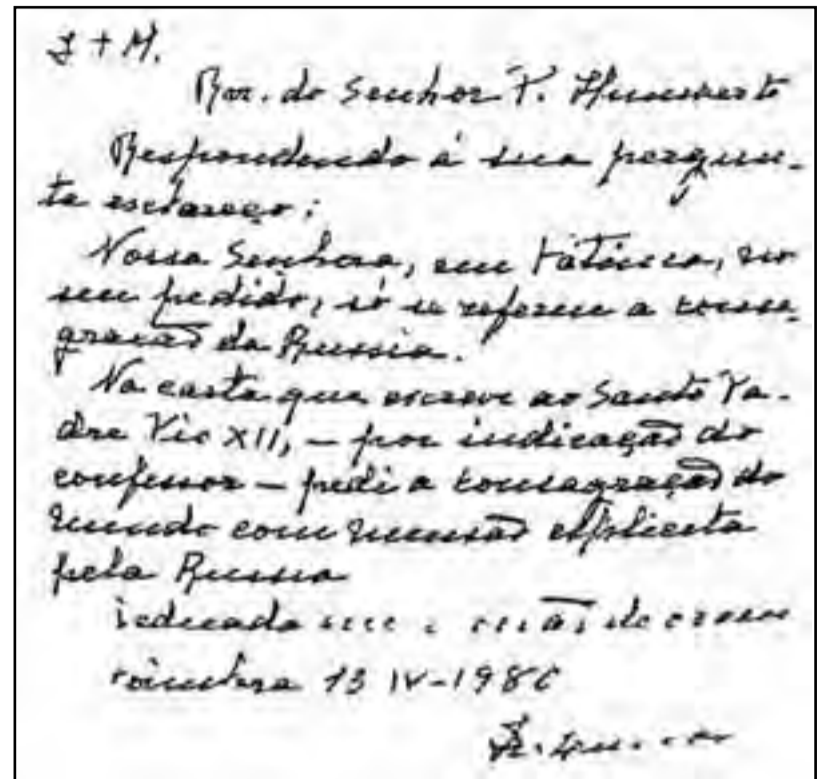 J + M.
Rev. do Senhor P. Humberto
Respondendo á sua pergun-
ta esclareço:
Nossa Senhora, em Fátima, no
seu pedido, só se referiu a consa-
gração da Russia.
Na carta que escrevi ao Santo Pa-
dre Pio XII, – por indicação do
confessor – pedi a consagração do
mundo com mensão explicita
pela Russia
Dedicada
Coimbra 13 IV-1980